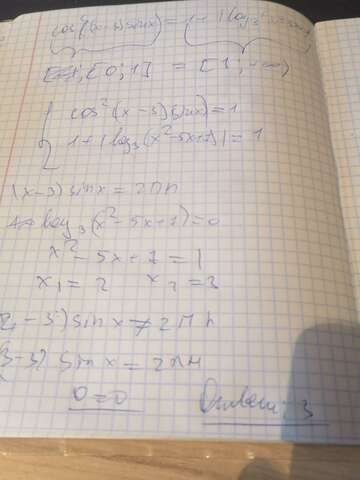 cos²((x-3)sinx) = 1+|log₃(x²-5x+7)|
[0;1] = [1;+∞)
cos²(x-3)sinx) = 1
1+|log₃(x²-5x+7)| = 1
(x-3) sinx = 2πn
log₃(x²-5x+7) = 0
x²-5x+7 = 1
x₁ = 2 x₂ = 3
2-3) sinx ≠ 2πn
3-3) sinx = 2πn
0 = 0 Ответ: 3